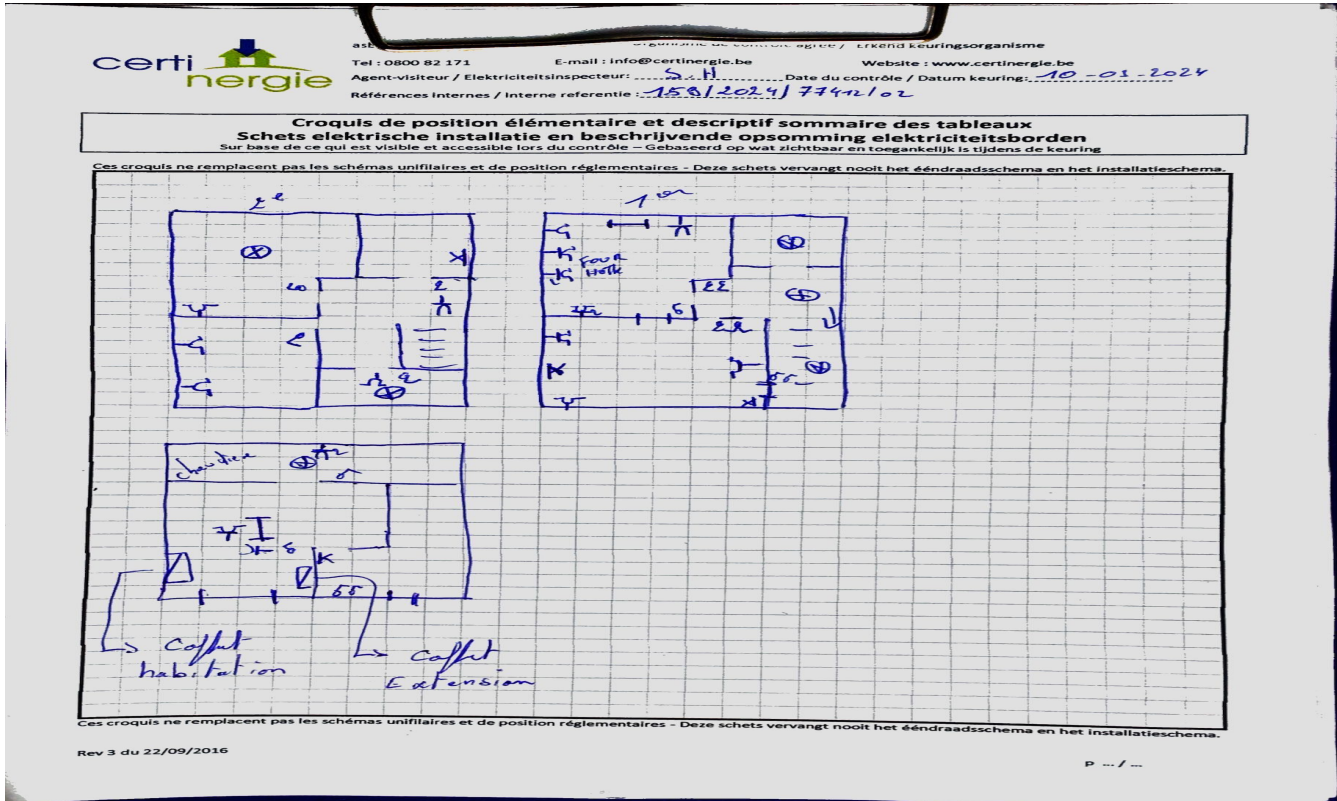 certinergie
Organisme de contrôle agréé / Erkend keuringsorganisme
Tel : 0800 82 171 E-mail : info@certinergie.be Website : www.certinergie.be
Agent-visiteur / Elektriciteitsinspecteur: S.H Date du contrôle / Datum keuring: 10-01-2024
Références internes / Interne referentie : 158/2024/77412/02
Croquis de position élémentaire et descriptif sommaire des tableaux
Schets elektrische installatie en beschrijvende opsomming elektriciteitsborden
Sur base de ce qui est visible et accessible lors du contrôle – Gebaseerd op wat zichtbaar en toegankelijk is tijdens de keuring
Ces croquis ne remplacent pas les schémas unifilaires et de position réglementaires - Deze schets vervangt nooit het ééndraadsschema en het installatieschema.
2e
1er
Four
Hotte
chaudière
Coffret
habitation
Coffret
Extension
Ces croquis ne remplacent pas les schémas unifilaires et de position réglementaires - Deze schets vervangt nooit het ééndraadsschema en het installatieschema.
Rev 3 du 22/09/2016
P .../ ...